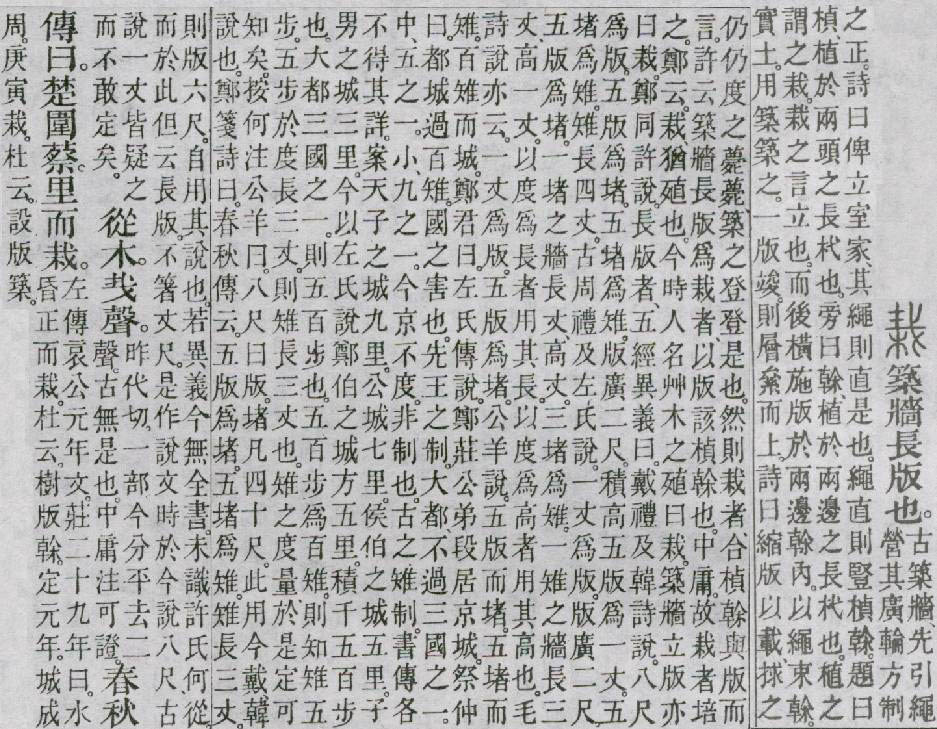 栽 築牆長版也。古築牆先引繩
營其廣輪方制
之正。詩曰俾立室家、其繩則直是也。繩直則豎楨榦。題曰
楨植於兩頭之長杙也。旁曰榦。植於兩邊之長杙也。植之
謂之栽。栽之言立也。而後橫施版於兩邊榦內。以繩束榦。
實土。用築築之。一版竣。則層絫而上。詩曰縮版以載捄之
仍仍度之薨薨築之登登是也。然則栽者、合楨榦與版而
言。許云築牆長版爲栽者、以版該楨榦也。中庸。故栽者培
之。鄭云。栽猶殖也。今時人名艸木之殖曰栽。築牆立版亦
曰栽。鄭同許說。長版者、五經異義曰。戴禮及韓詩說。八尺
爲版。五版爲堵。五堵爲雉。版廣二尺。積高五版爲一丈。五
堵爲雉。雉長四丈。古周禮及左氏說。一丈爲版。版廣二尺。
五版爲堵。一堵之牆長丈、高丈。三堵爲雉。一雉之牆長三
丈、高一丈。以度爲長者用其長。以度爲高者用其高也。毛
詩說亦云。一丈爲版。五版爲堵。公羊說。五版而堵。五堵而
雉。百雉而城。鄭君曰。左氏傳說鄭莊公弟段居京城。祭仲
曰都城過百雉、國之害也。先王之制、大都不過三國之一。
中、五之一。小、九之一。今京不度。非制也。古之雉制。書傳各
不得其詳。案天子之城九里。公城七里。侯伯之城五里。子
男之城三里。今以左氏說鄭伯之城方五里。積千五百步
也。大都三國之一。則五百步也。五百步爲百雉。則知雉五
步。五步於度長三丈。則雉長三丈也。雉之度量於是定可
知矣。按何注公羊曰。八尺曰版。堵凡四十尺。此用今戴韓
說也。鄭箋詩曰。春秋傳云。五版爲堵。五堵爲雉。雉長三丈。
則版六尺。自用其說也。若異義今無全書。未識許氏何從
而於此但云長版。不箸丈尺。是作說文時於今說八尺古
說一丈皆疑之
而不敢定矣。
從木𢦏聲。昨代切。一部。今分平去二
聲。古無是也。中庸注可證。
春秋
傳曰。楚圍蔡里而栽。左傳哀公元年文。莊二十九年曰。水
昏正而栽。杜云。樹版榦。定元年。城成
周。庚寅栽。杜云。設版築。